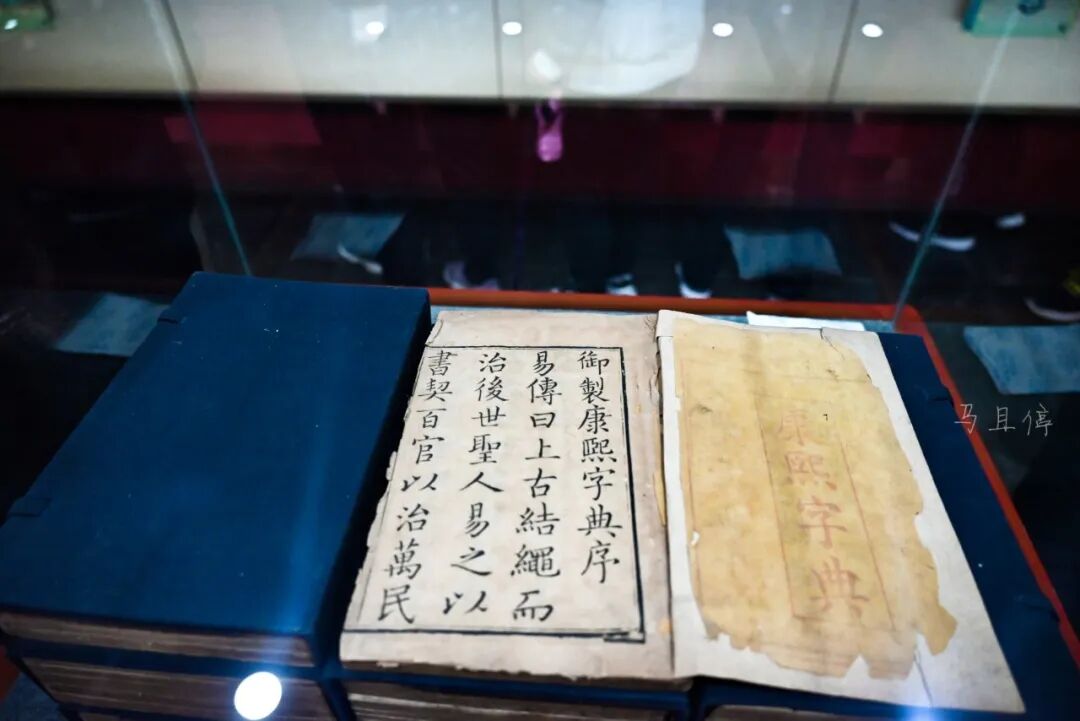 康熙字典
御製康熙字典序
易傳曰上古結繩而
治後世聖人易之以
書契百官以治萬民
马且停